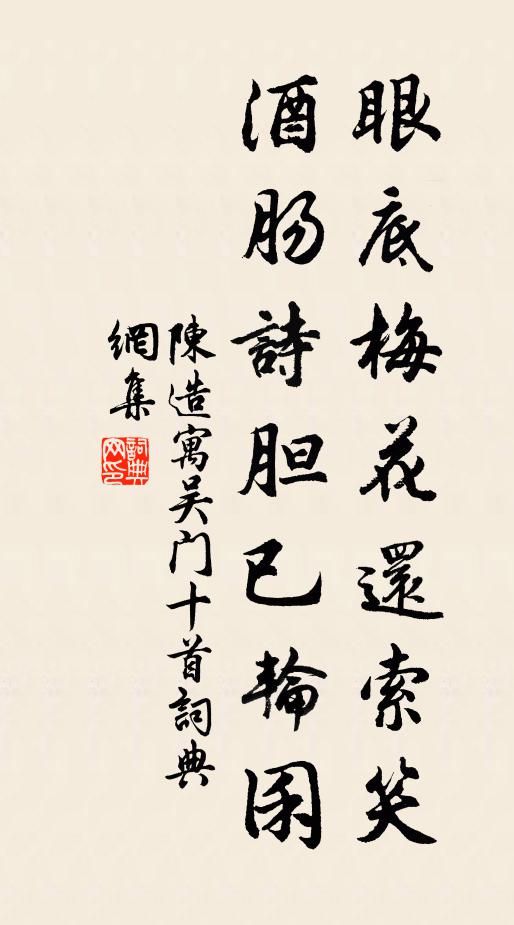 眼底梅花還索笑
酒肠詩胆已輪囷
陳造寓吴门十首詞典
網集
詞典網印